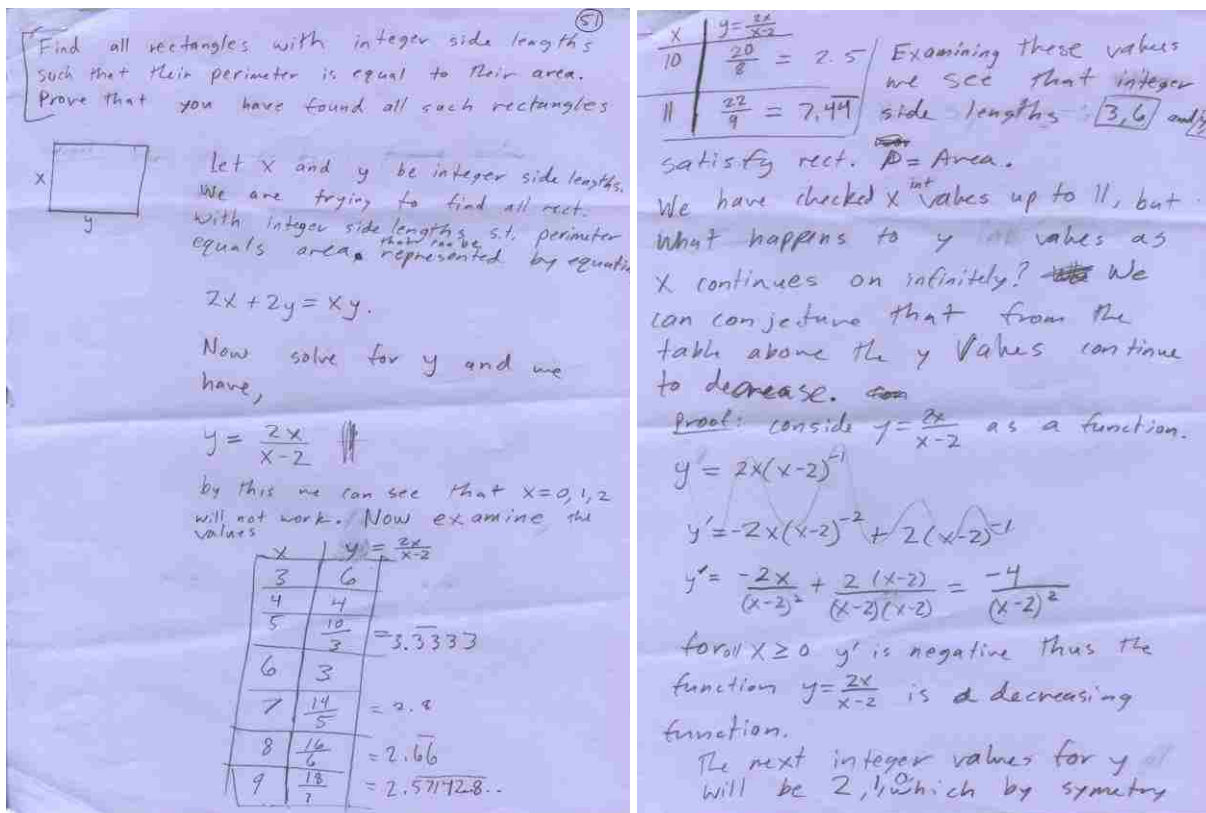 51
Find all rectangles with integer side lengths
such that their perimeter is equal to their area.
Prove that you have found all such rectangles
x
y
Let x and y be integer side lengths.
We are trying to find all rect.
with integer side lengths s.t. perimeter
equals area that can be represented by equati
2x + 2y = xy.
Now solve for y and we
have,
y = 2x/(x-2)
by this we can see that x=0,1,2
will not work. Now examine the
values
x | y = 2x/(x-2)
3 | 6
4 | 4
5 | 10/3 = 3.3333
6 | 3
7 | 14/5 = 2.8
8 | 16/6 = 2.66
9 | 18/7 = 2.571428..
x | y = 2x/(x-2)
10 | 20/8 = 2.5
11 | 22/9 = 2.44
Examining these values
we see that integer
side lengths 3,6 and
satisfy rect. P = Area.
We have checked x int values up to 11, but
what happens to y values as
x continues on infinitely? We
can conjecture that from the
table above the y values continue
to decrease.
Proof: conside y = 2x/(x-2) as a function.
y = 2x(x-2)^-1
y' = -2x(x-2)^-2 + 2(x-2)^-1
y' = -2x/(x-2)^2 + 2(x-2)/(x-2)(x-2) = -4/(x-2)^2
for all x ≥ 0 y' is negative thus the
function y = 2x/(x-2) is a decreasing
function.
The next integer values for y
will be 2,1,0 which by symetry